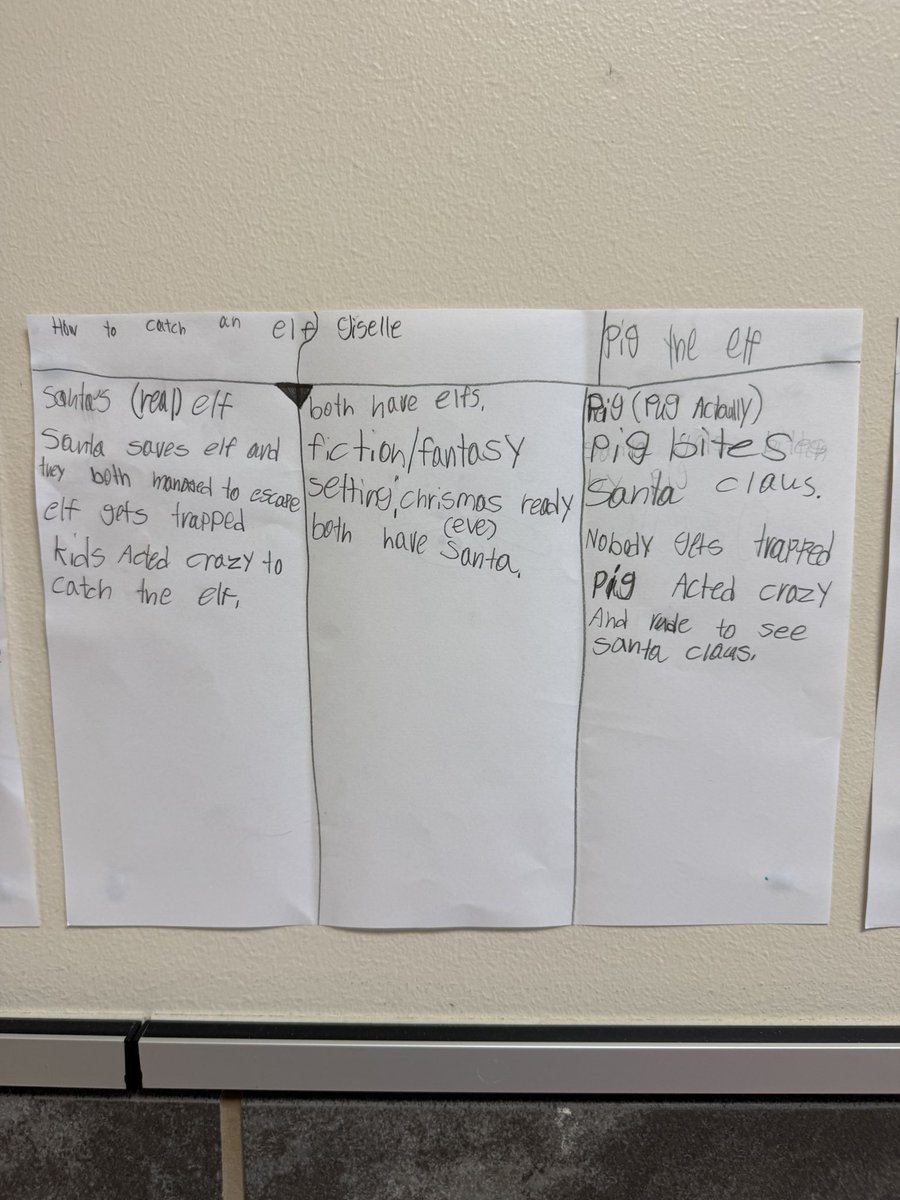 How to catch an elf
Santa's (real) elf
Santa saves elf and
they both manased to escape
elf gets trapped
kids Acted crazy to
catch the elf.
Giselle
both have elfs.
fiction/fantasy
setting, chrismas ready
(eve)
both have Santa.
Pig the elf
Pig (Pug Actually)
Pig bites
Santa claus.
Nobody gets trapped
Pig Acted crazy
And rude to see
santa claus.